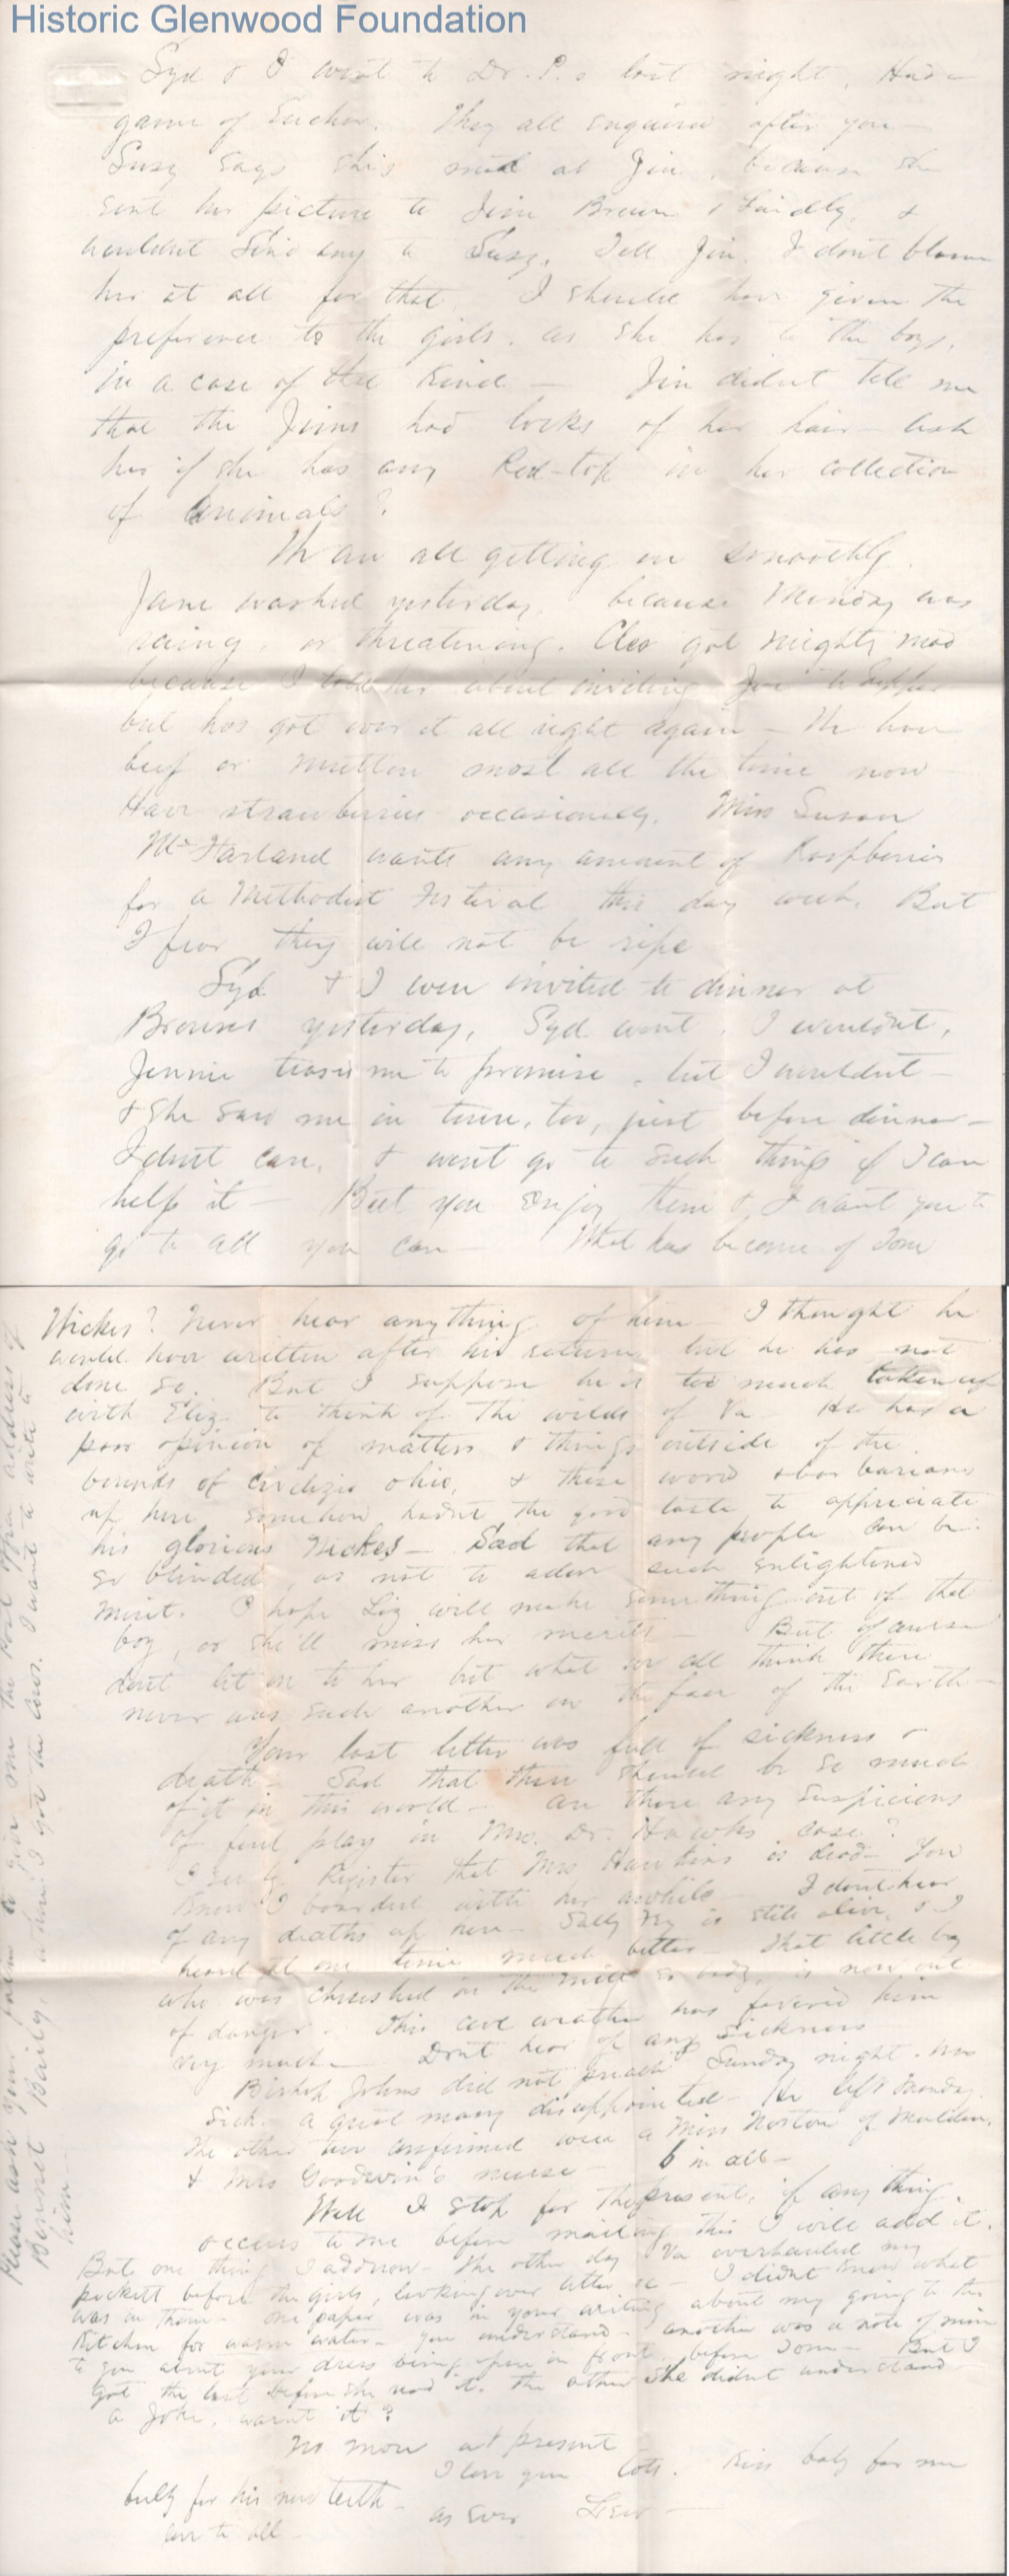 Historic Glenwood Foundation
Syd & I went to Dr. P.s last night. Had a
game of Euchre. They all enquired after you —
Susy says she's mad at Jin, because she
sent her picture to Jim Brown & Laidly, &
wouldnt send any to Susy. Tell Jin. I dont blame
her at all for that. I should have given the
preference to the girls. as she has to the boys,
in a case of that kind — Jin didnt tell me
that the Jims had locks of her hair — ask
her if she has any Red-top in her collection
of Animals?
We are all getting on smoothly.
Jane washed yesterday, because Monday was
rainy, or threatening. Cleo got mighty mad
because I told her about inviting Joe to Supper
but has got over it all right again — We have
beef or mutton most all the time now
Have strawberries occasionally. Miss Susan
McFarland wants any amount of Raspberries
for a Methodist Festival this day week. But
I fear they will not be ripe
Syd & I were invited to dinner at
Browns yesterday, Syd went. I wouldnt,
Jennie teased me to promise, but I wouldnt —
& She saw me in town, too, just before dinner —
I dont care, & wont go to such things if I can
help it — But you enjoy them & I want you to
go to all you can — What has become of Tom
Hickes? Never hear anything of him — I thought he
would have written after his return, but he has not
done so. But I suppose he is too much taken up
with Eliz. to think of the wilds of Va He has a
poor opinion of matters & things outside of the
bounds of Ohio, & these barbarians
up here somehow hadnt the good taste to appreciate
his glorious Hickes — Sad that any people can be
so blinded, as not to adore such enlightened
merit. I hope Liz will make something out of that
boy, or she'll miss her merits — But of course
dont let on to her but what we all think there
never was such another on the face of the Earth —
Your last letter was full of sickness &
death — Sad that there should be so much
of it in this world — Are there any suspicions
of foul play in Mrs. Dr. Hawks case?
I see by Register that Mrs Hawkins is dead — You
know I boarded with her awhile — I dont hear
of any deaths up here — Sally is still alive, & I
heard at one time much better — That little boy
who was crushed in the mill so badly, is now out
of danger. This cool weather has favored him
very much — Dont hear of any sickness
Bishop Johns did not preach Sunday night. was
sick. a great many disappointed — He left Monday
The other two confirmed were a Miss Norton of Malden,
& Mrs Goodwin's nurse — 6 in all —
Well I stop for the present, if any thing
occurs to me before mailing this I will add it.
But one thing I add now — The other day Va overhauled my
pockett before the girls, looking over letters &c — I didnt know what
was in them — one paper was in your writing about my going to the
Kitchen for warm water — you understand — another was a note of mine
to you about your dress being open in front, before Tom — But I
got the last before she read it. the other she didnt understand
a Joke, warnt it?
No more at present
I love you lots. Kiss baby for me
bully for his new teeth —
as ever Lew —
love to all —
Please ask your father to give me the Post Office address of
Bennet Baily, whom I got the of. I want to write to
him —